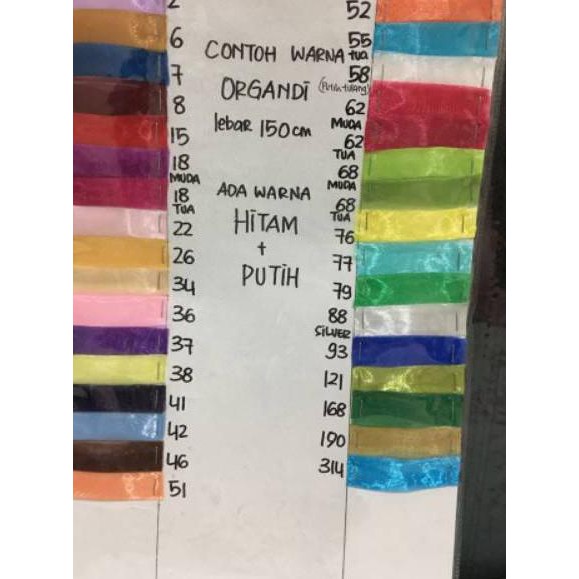 2
6
7
8
15
18
MUDA
18
TUA
22
26
34
36
37
38
41
42
46
51
CONTOH WARNA
ORGANDI
lebar 150 cm
ADA WARNA
HITAM
+
PUTIH
52
55
TUA
58
(Putih tulang)
62
MUDA
62
TUA
68
MUDA
68
TUA
76
77
79
88
SILVER
93
121
168
190
314